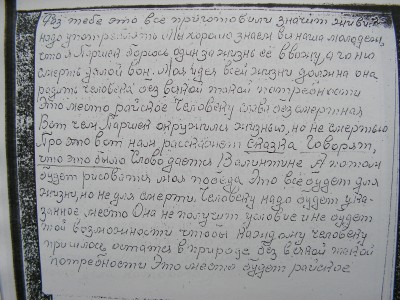 Уже тебе это все приготовили значит живу. Не
надо употреблять Мы хорошо знаем вы наша молодежь,
что я Паршек борюсь один за жизнь её ввожу, а гоню
смерть далой вон. Моя идея всей жизни должна она
родить человека без всякой такой потребности
Это место райское Человеку слава безсмертная
Вот чем Паршек окружился жизнью, но не смертью
Про это вот нам расскажет сказка Говорят,
что это было Слово дается Валентине А потом
будет рисоватся моя победа Это всё будет для
жизни, но не для смерти. Человеку надо будет ука-
занное место Она не получит условие и не будет
той возможности чтобы каждому человеку
пришлось остатся в природе без всякой такой
потребности Это место будет райское